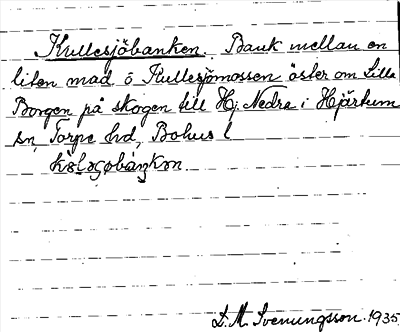 Kullesjöbanken. Bank mellan en
liten mad o Kullesjömossen öster om Lilla
Borgen på skogen till Hj. Nedre i Hjärtum
sn, Torpe hd, Bohus l
D. M. Svenungsson. 1935